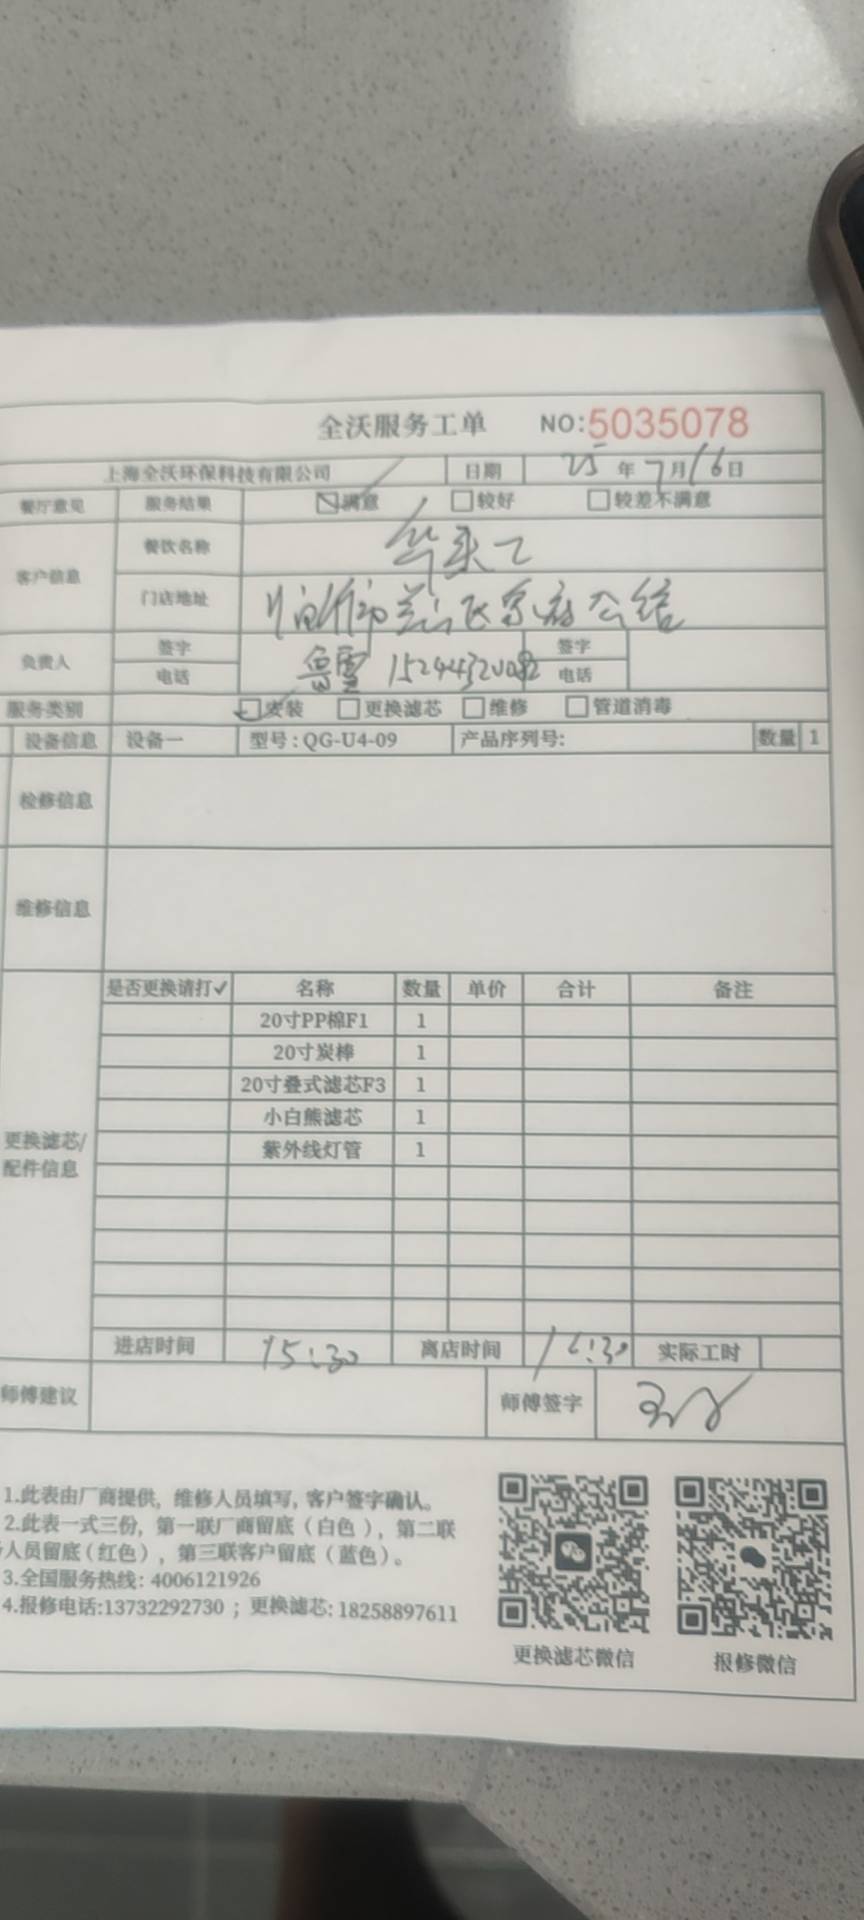 全沃服务工单 NO:5035078
上海全沃环保科技有限公司 日期 25年7月16日
餐厅意见 服务结果 满意 较好 较差不满意
客户信息 餐饮名称 华莱士
门店地址
负责人 签字 鲁雪 签字
电话 电话
服务类别 安装 更换滤芯 维修 管道消毒
设备信息 设备一 型号:QG-U4-09 产品序列号: 数量 1
检修信息
维修信息
是否更换请打✓ 名称 数量 单价 合计 备注
20寸PP棉F1 1
20寸炭棒 1
20寸叠式滤芯F3 1
小白熊滤芯 1
紫外线灯管 1
更换滤芯/
配件信息
进店时间 15:30 离店时间 16:30 实际工时
师傅建议 师傅签字
1.此表由厂商提供，维修人员填写，客户签字确认。
2.此表一式三份，第一联厂商留底（白色），第二联
人员留底（红色），第三联客户留底（蓝色）。
3.全国服务热线：4006121926
4.报修电话:13732292730；更换滤芯：18258897611
更换滤芯微信 报修微信